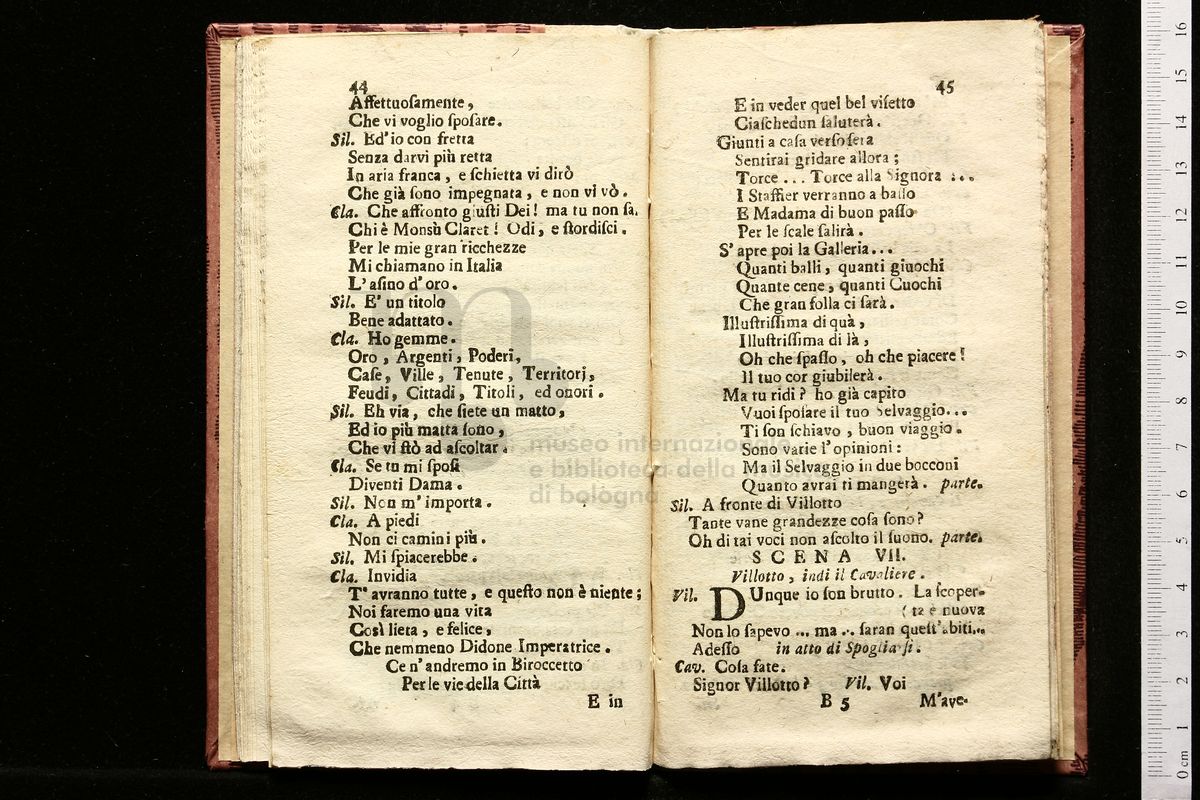 44
Affettuoſamente,
Che vi voglio ſpoſare.
Sil. Ed' io con fretta
Senza darvi più retta
In aria franca, e ſchietta vi dirò
Che già ſono impegnata, e non vi vò.
Cla. Che affronto giuſti Dei! ma tu non ſa.
Chi è Monsù Claret! Odi, e ſtordiſci.
Per le mie gran ricchezze
Mi chiamano in Italia
L' aſino d' oro.
Sil. E' un titolo
Bene adattato.
Cla. Ho gemme.
Oro, Argenti, Poderi,
Caſe, Ville, Tenute, Territorj,
Feudi, Cittadi, Titoli, ed onori.
Sil. Eh via, che ſiete un matto,
Ed io più matta ſono,
Che vi ſtò ad aſcoltar.
Cla. Se tu mi ſpoſi
Diventi Dama.
Sil. Non m' importa.
Cla. A piedi
Non ci camini più.
Sil. Mi ſpiacerebbe.
Cla. Invidia
T' avranno tutte, e queſto non è niente;
Noi faremo una vita
Così lieta, e felice,
Che nemmeno Didone Imperatrice.
Ce n' andremo in Biroccetto
Per le vie della Città
E in
45
E in veder quel bel viſetto
Ciaſchedun ſaluterà.
Giunti a caſa verſo ſera
Sentirai gridare allora;
Torce... Torce alla Signora ...
I Staffier verranno a baſſo
E Madama di buon paſſo
Per le ſcale ſalirà.
S' apre poi la Galleria...
Quanti balli, quanti giuochi
Quante cene, quanti Cuochi
Che gran folla ci ſarà.
Illuſtriſſima di quà,
Illuſtriſſima di là,
Oh che ſpaſſo, oh che piacere!
Il tuo cor giubilerà.
Ma tu ridi? ho già capito
Vuoi ſpoſare il tuo Selvaggio...
Ti ſon ſchiavo, buon viaggio.
Sono varie l' opinioni:
Ma il Selvaggio in due bocconi
Quanto avrai ti mangerà. parte.
Sil. A fronte di Villotto
Tante vane grandezze coſa ſono?
Oh di tai voci non aſcolto il ſuono. parte.
SCENA VII.
Villotto, indi il Cavaliere.
Vil. DUnque io ſon brutto. La ſcoper-
(ta è nuova
Non lo ſapevo ... ma ... ſaran queſt' abiti...
Adeſſo in atto di Spogliarſi.
Cav. Coſa fate.
Signor Villotto? Vil. Voi
B 5 M'ave-
museo internazionale
e biblioteca della musica
di bologna
0 cm 1 2 3 4 5 6 7 8 9 10 11 12 13 14 15 16